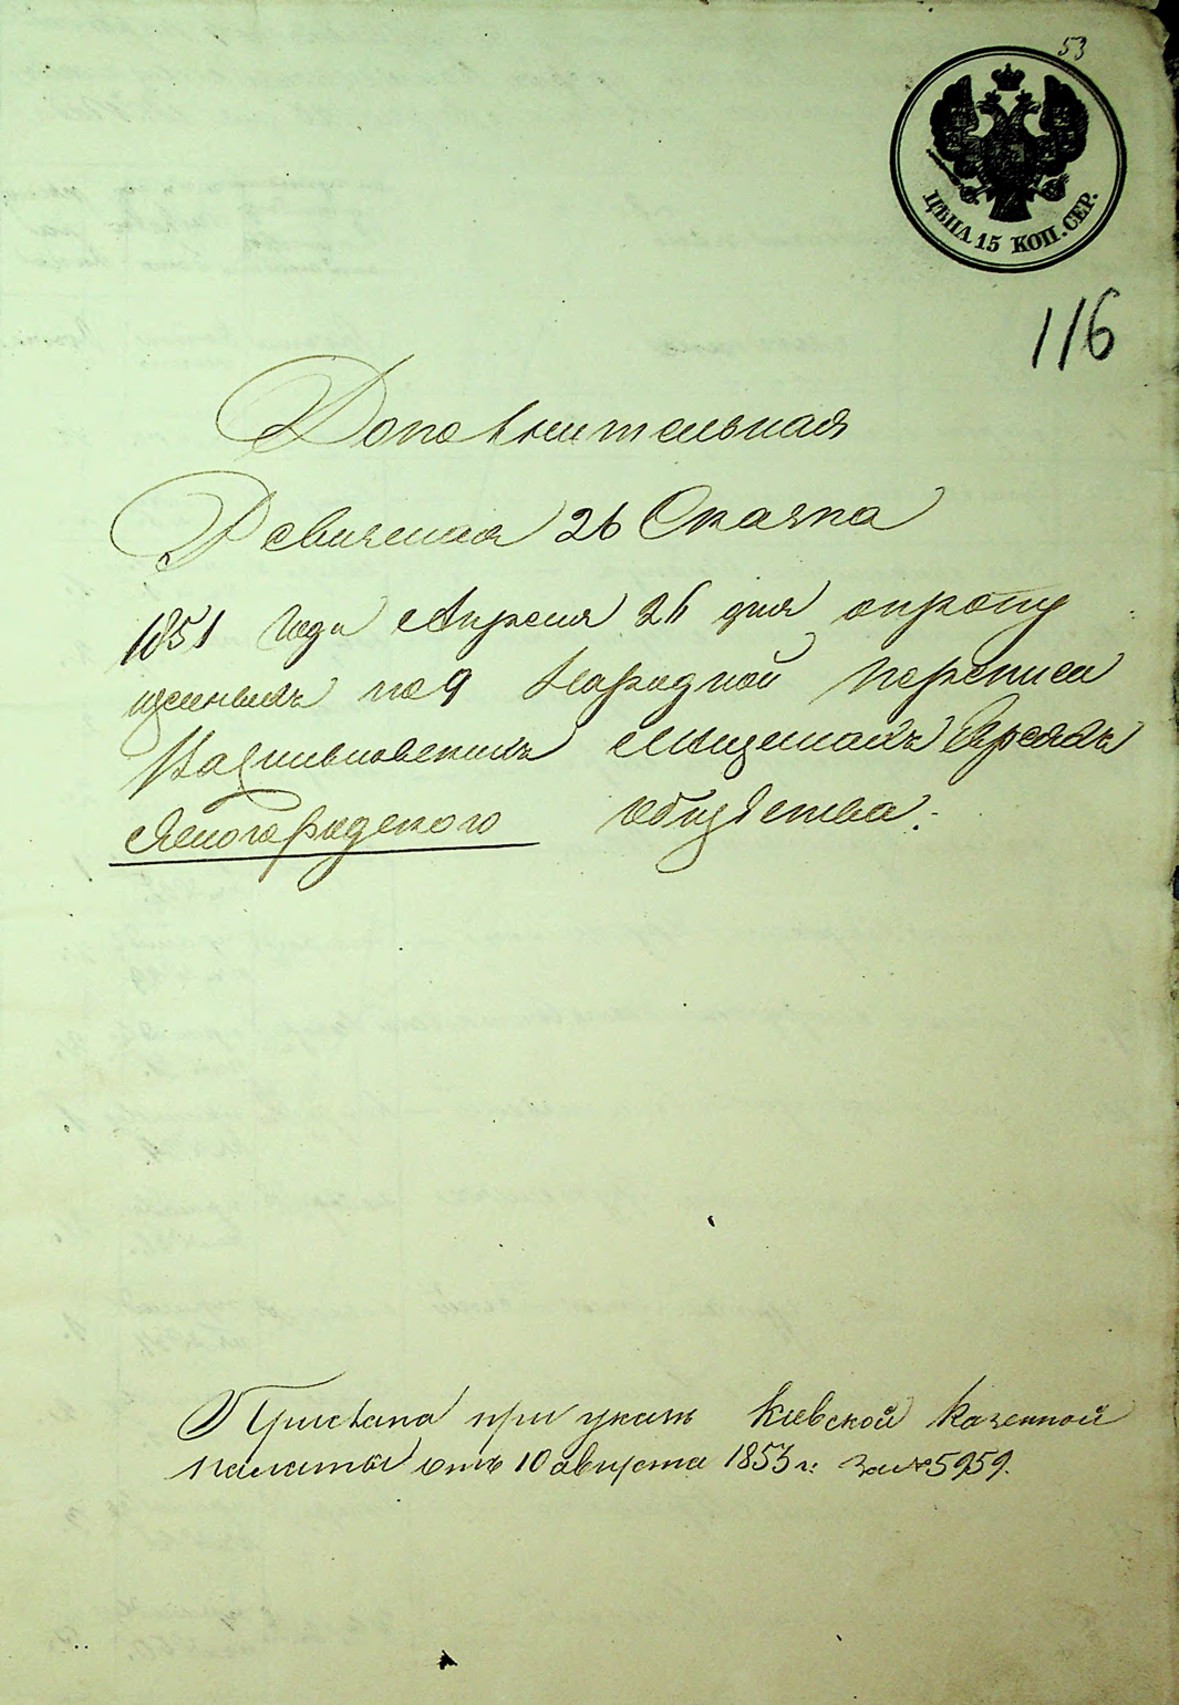 53
ЦѢНА 15 КОП. СЕР.
116
Дополнительная
Ревизская 26 Сказка
1851 года Апреля 26 дня о пропу
щенныхъ по 9 Народной переписи
Васильковскихъ Мещанахъ Евреяхъ
Ясногородского общества.
Прислана при указѣ Киевской Казенной
палаты отъ 10 августа 1853 г: за № 5959.